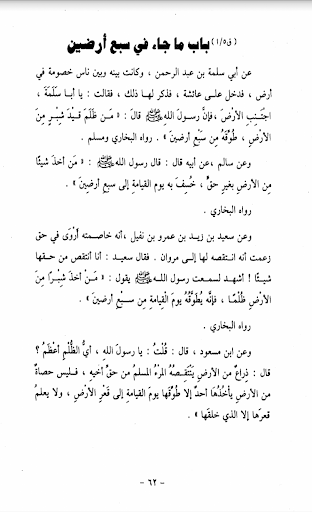 (ق١/٥) باب ما جاء في سبع أرضين
عن أبي سلمة بن عبد الرحمن ، وكانت بينه وبين ناس خصومة في
أرض ، فدخل على عائشة ، فذكر لها ذلك ، فقالت : يا أبا سَلَمَةَ ،
اجتَنِبِ الأرْضَ، فإنَّ رسولَ اللهِ ﷺ قالَ : « مَـن ظَلَمَ قِيدَ شِبْرٍ مِنَ
الأرْضِ ، طُوِّقَهُ مِن سَبْعِ أرَضينَ » . رواه البخاري ومسلم .
وعن سالم ،عن أبيه قال : قال رسول اللهﷺ : « مَنْ أخذَ شيئًا
مِنَ الأرْضِ بغيرِ حقُّ ، خُسِفَ به يوم القيامةِ إلى سبعِ أرَضينَ » .
رواه البخاري .
وعن سعيد بن زيـد بن عمرو بن نفيل ،أنه خاصمته أَرْوَى في حق
زعمت أنه انـتقصه لها إلـى مروان . فقال سعيـد : أنا أنتقص من حـقـها
شيئًا ! أشهد لسمعت رسول اللـهﷺ يقول : « مَـنْ أخذَ شِبْـرًا مِنَ
الأرْضِ ظُلْمًـا ، فإنَّـه يُطَوَّقُهُ يومَ القِيامةِ مِـن سـبعِ أرضينَ » .
رواه البخاري .
وعن ابن مسعود ، قال : قُلْتُ : يا رسولَ اللهِ ، أيُّ الظُّلْمِ أعظَمُ ؟
قال : ذِراعٌ مـن الأرضِ يَنْتَقِـصُهُ المَرْءُ المسلمُ من حقِّ أخيـهِ ، فلـيس حصاةٌ
من الأرضِ يأخُذُهَا أحدٌ إلا طُوِّقها يومَ القيامةِ إلى قَعْرِ الأرْضِ ، ولا يعلمُ
قعرَها إلا الذي خلقَها » .
- ٦٢ -